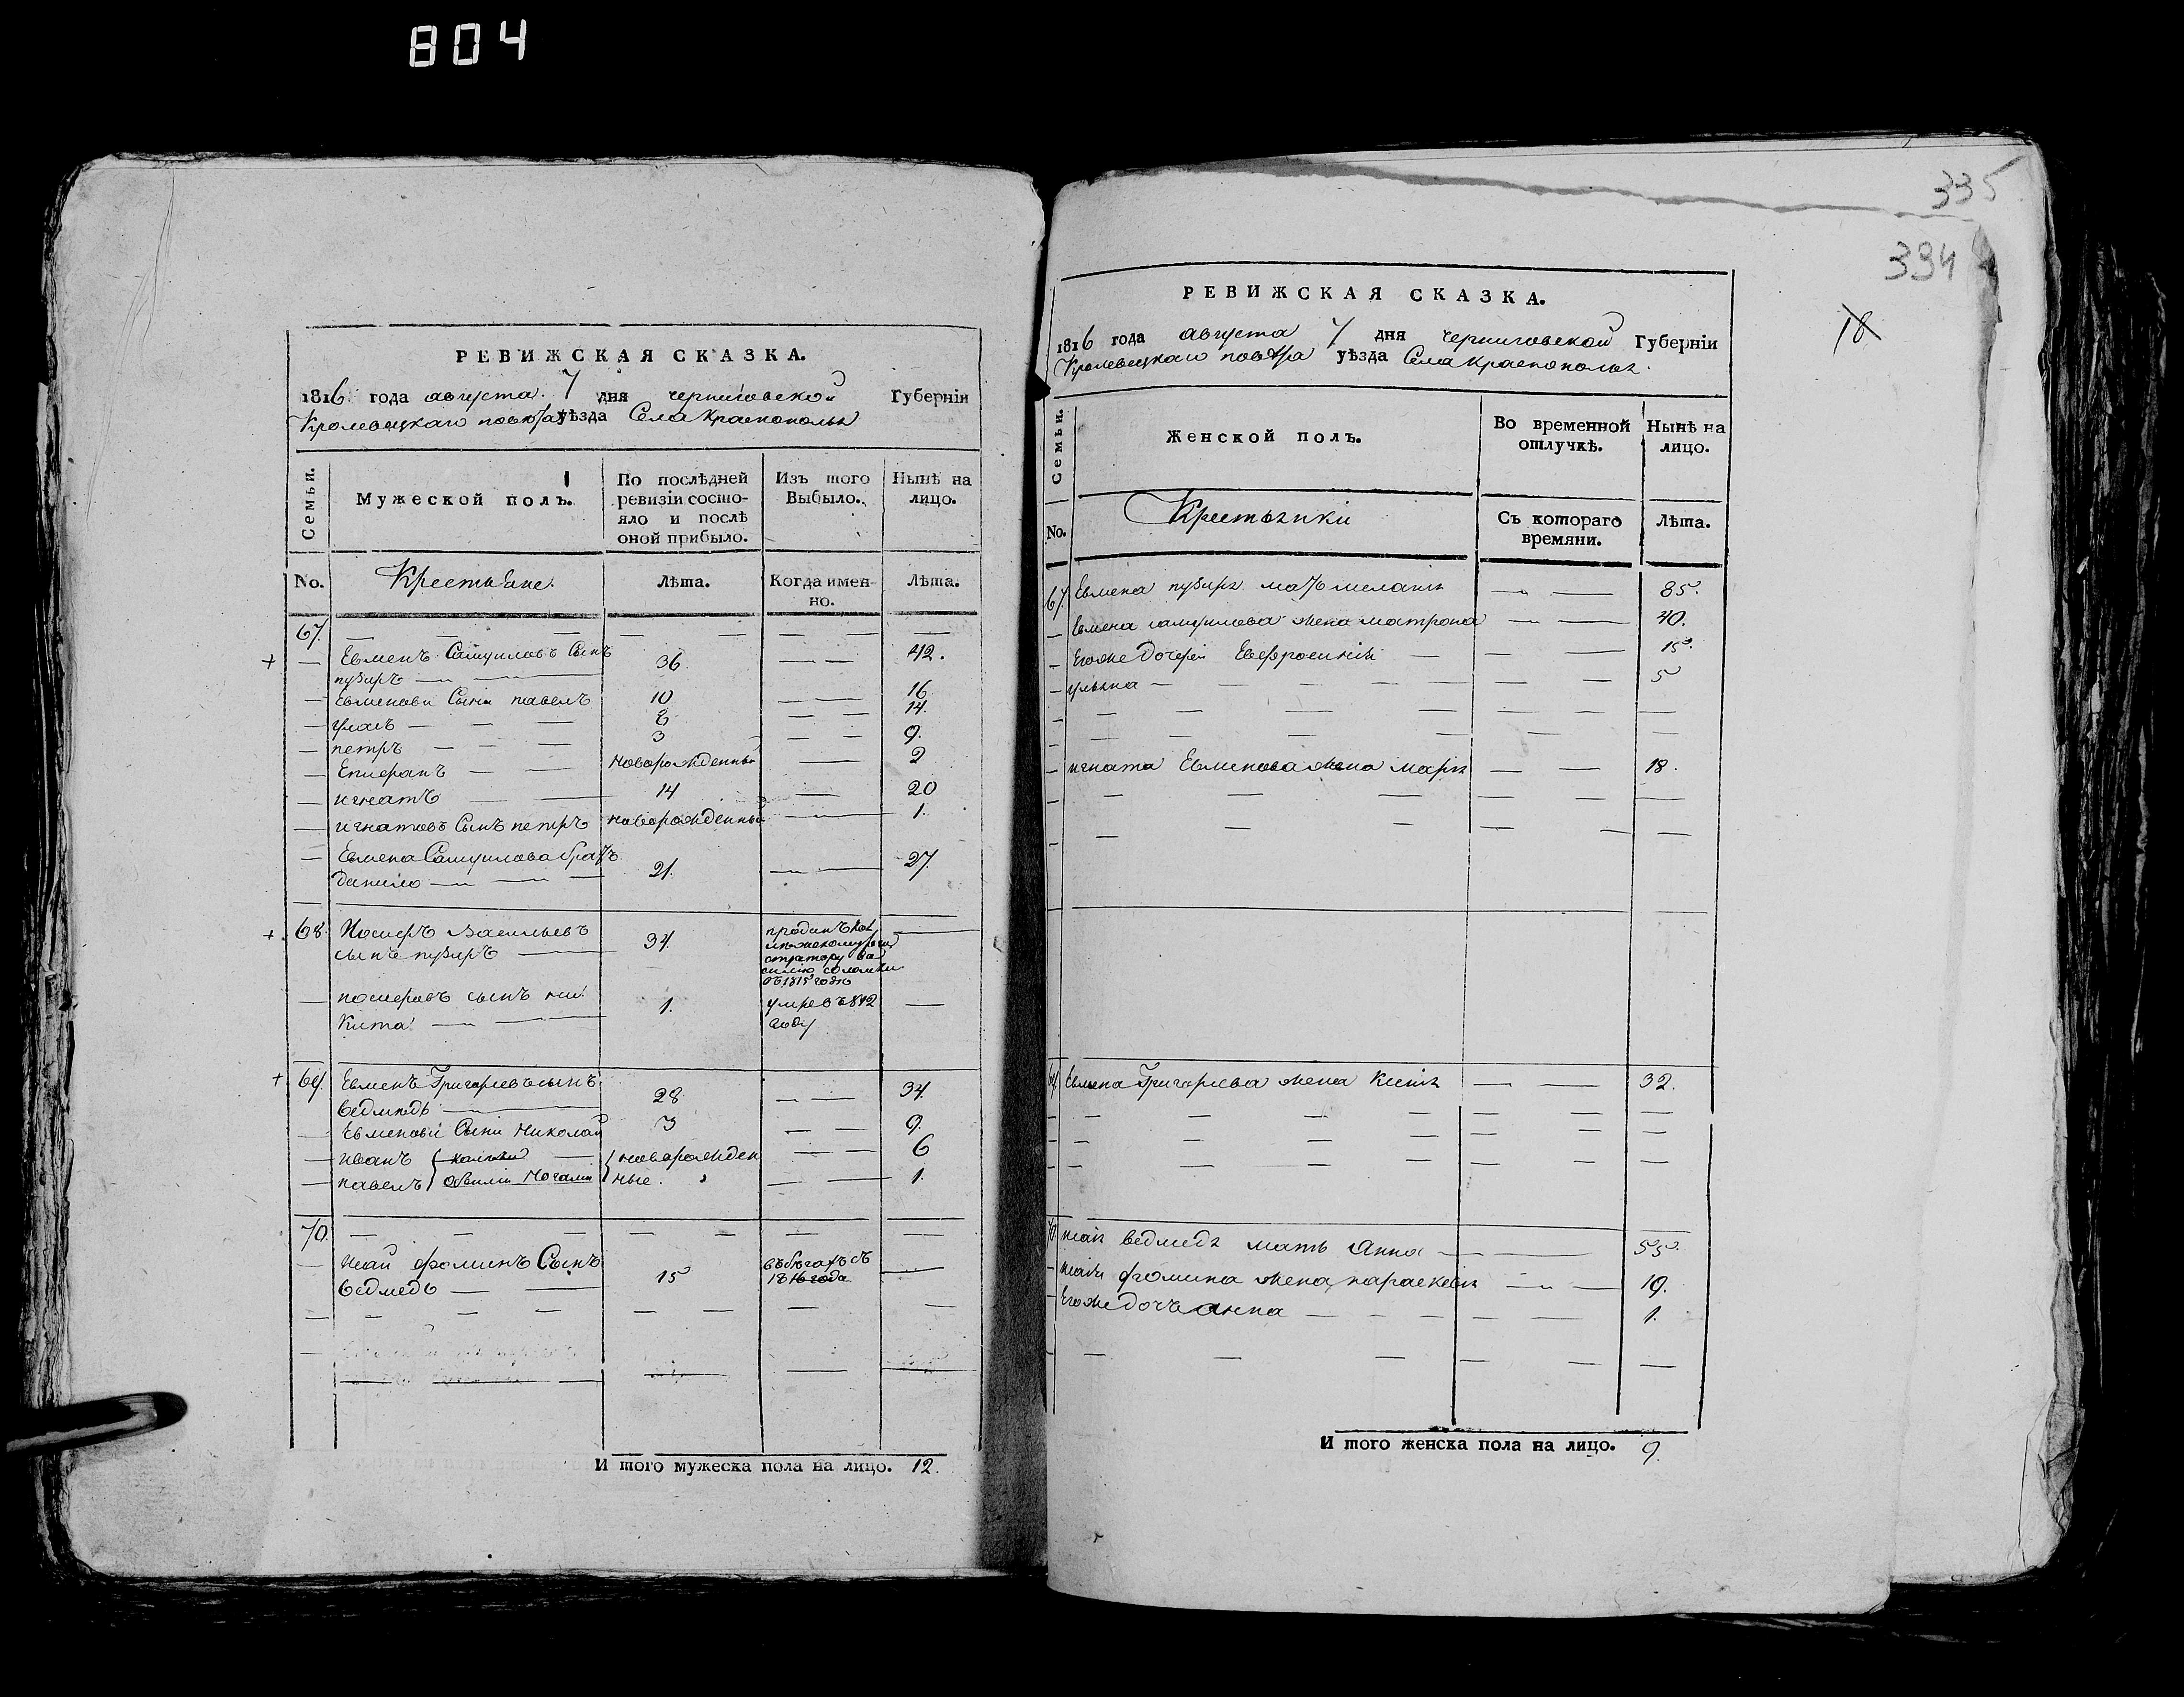 804
РЕВИЖСКАЯ СКАЗКА.
1816 года августа 7 дня черниговской Губерніи
Кролевецкаго повѣта уѣзда Села Краснополья
Семьи.
Мужеской полъ.
По послѣдней ревизіи состо-
яло и послѣ
оной прибыло.
Изъ того
Выбыло.
Нынѣ на
лицо.
No.
Крестьяне
Лѣта.
Когда имен-
но.
Лѣта.
67.
Евменъ Самуиловъ Сынъ
пузиръ 36. 42.
Евменови Сыни павелъ 10 16
8 14.
петръ 3 9.
Новорожденный 2
игнатъ 14 20
игнатовъ Сынъ петръ новорожденный 1.
Евмена Самуилова братъ
данило 21. 27.
68. Васильевъ
сынъ пузиръ 34. проданъ
въ 1815 годе
сынъ ни
кита 1. умре въ 812
году
69. Евменъ Григорьевъ сынъ
ведмедь 28 34.
Евменови Сыни Николай 3 9.
иванъ новорожден 6
павелъ ные. 1.
70.
фоминъ Сынъ
ведмедь 15 въ бегахъ съ
1816 года
И того мужеска пола на лицо. 12.
335
334
18
РЕВИЖСКАЯ СКАЗКА.
1816 года августа 7 дня черниговской Губерніи
Кролевецкаго повѣта уѣзда Села Краснополья.
Семьи.
Женской полъ.
Во временной
отлучкѣ.
Нынѣ на
лицо.
No.
Крестьянки
Съ котораго
времяни.
Лѣта.
67. Евмена пузиря мать меланья 85.
Евмена самуилова жена матрона 40.
Егоже дочери Евфросинія 15.
ульяна 5
игната Евменова жена марья 18.
69 Евмена Григорьева жена 32.
70 ведмедя мать Анна 55.
фомина жена параскевія 19.
Егоже дочь анна 1.
И того женска пола на лицо. 9.